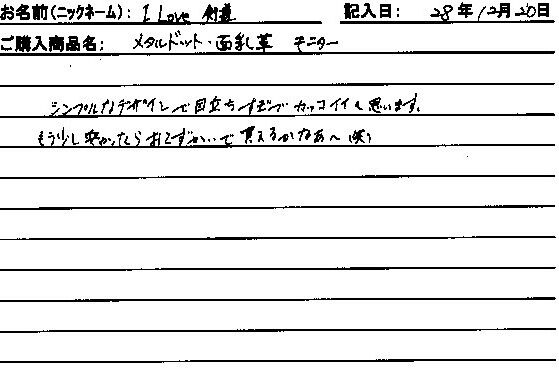 お名前(ニックネーム): I Love 剣道 記入日: 28年12月20日
ご購入商品名: メタルドット・面乳革 モニター
シンプルなデザインで目立ちすぎでカッコイイと思います。
もう少し安かったらおこずかいで買えるかなあ〜(笑)